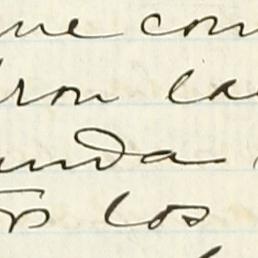 ue con
ron la
unda
los